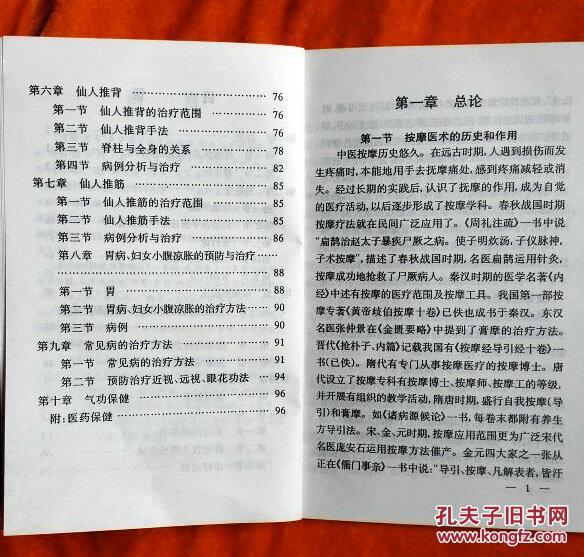 第六章 仙人推背 …………………… 76
第一节 仙人推背的治疗范围 ………… 76
第二节 仙人推背手法 ………………… 76
第三节 脊柱与全身的关系 …………… 78
第四节 病例分析与治疗 ……………… 82
第七章 仙人推筋 …………………… 85
第一节 仙人推筋的治疗范围 ………… 85
第二节 仙人推筋手法 ………………… 85
第三节 病例分析与治疗 ……………… 86
第八章 胃病、妇女小腹凉胀的预防与治疗……
…………………………………… 88
第一节 胃 …………………………… 88
第二节 胃病、妇女小腹凉胀的治疗方法 … 90
第三节 病例 ………………………… 90
第九章 常见病的治疗方法 …………… 91
第一节 常见病的治疗方法 …………… 91
第二节 预防治疗近视、远视、眼花功法 … 94
第十章 气功保健 …………………… 96
附:医药保健 ………………………… 96
第一章 总论
第一节 按摩医术的历史和作用
中医按摩历史悠久。在远古时期,人遇到损伤而发
生疼痛时,本能地用手去抚摩痛处,感到疼痛减轻或消
失。经过长期的实践后,认识了抚摩的作用,成为自觉
的医疗活动,以后逐步形成了按摩学科。春秋战国时期
按摩疗法就在民间广泛应用了。《周礼注疏》一书中说
“扁鹊治赵太子暴疾尸厥之病。使子明炊汤,子仪脉神,
子术按摩”,描述了春秋战国时期,名医扁鹊运用针灸,
按摩成功地抢救了尸厥病人。秦汉时期的医学名著《内
经》中述有按摩的医疗范围及按摩工具。我国第一部按
摩专著《黄帝歧伯按摩十卷》已佚也成书于秦汉。东汉
名医张仲景在《金匮要略》中提到了膏摩的治疗方法。
晋代《抢朴子、内篇》记载我国有《按摩经导引经十卷》一
书(已佚)。隋代有专门从事按摩医疗的按摩博士。唐
代设立了按摩专科有按摩博士、按摩师、按摩工的等级,
并开展有组织的教学活动,隋唐时期,盛行自我按摩(导
引)和膏摩。如《诸病源候论》一书,每卷末都附有养生
方导引法。宋、金、元时期,按摩应用范围更为广泛宋代
名医庞安石运用按摩方法催产。金元四大家之一张从
正在《儒门事亲》一书中说:“导引、按摩、凡解表者,皆汗
— 1 —
孔夫子旧书网
www.kongfz.com